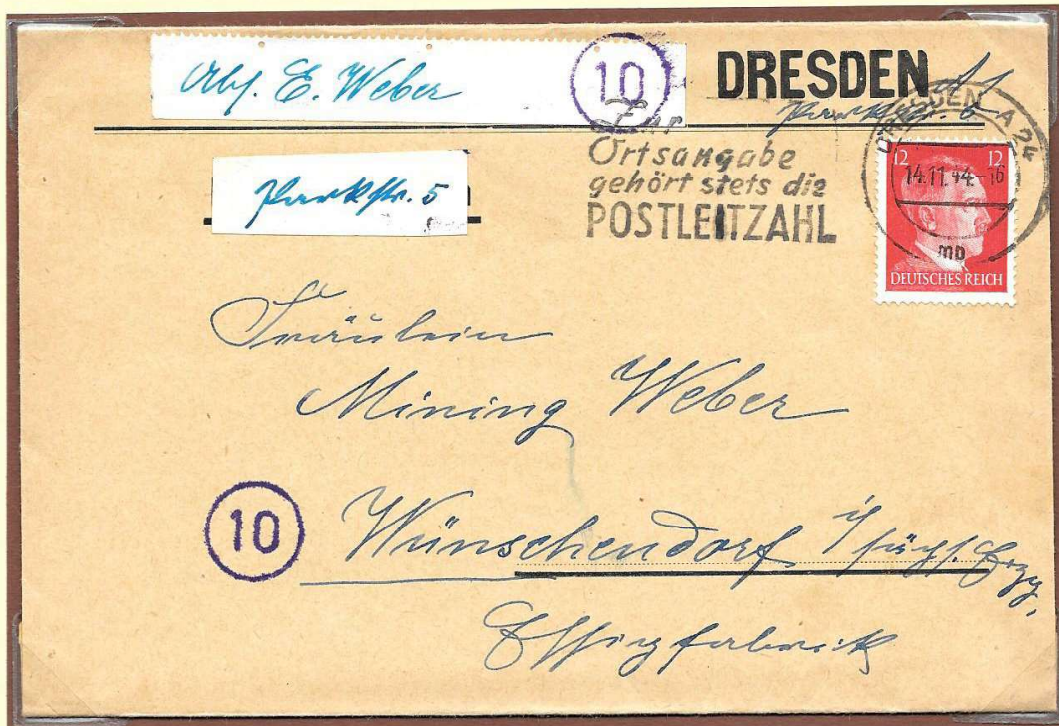 Abs. E. Weber
10
DRESDEN A1
Parkstr. 5
Zur
Ortsangabe
gehört stets die
POSTLEITZAHL
DRESDEN A 24
14.11.44.-16
mb
12 12
DEUTSCHES REICH
Fräulein
Mining Weber
10
Wünschendorf i/sächs. Erzg.
Essigfabrik